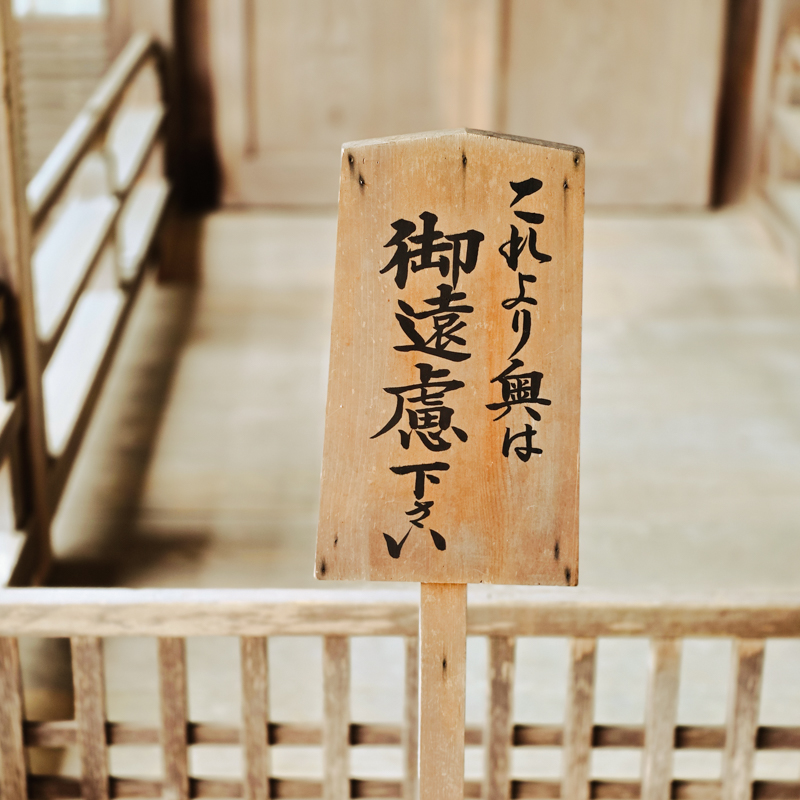 これより奥は
御遠慮下さい